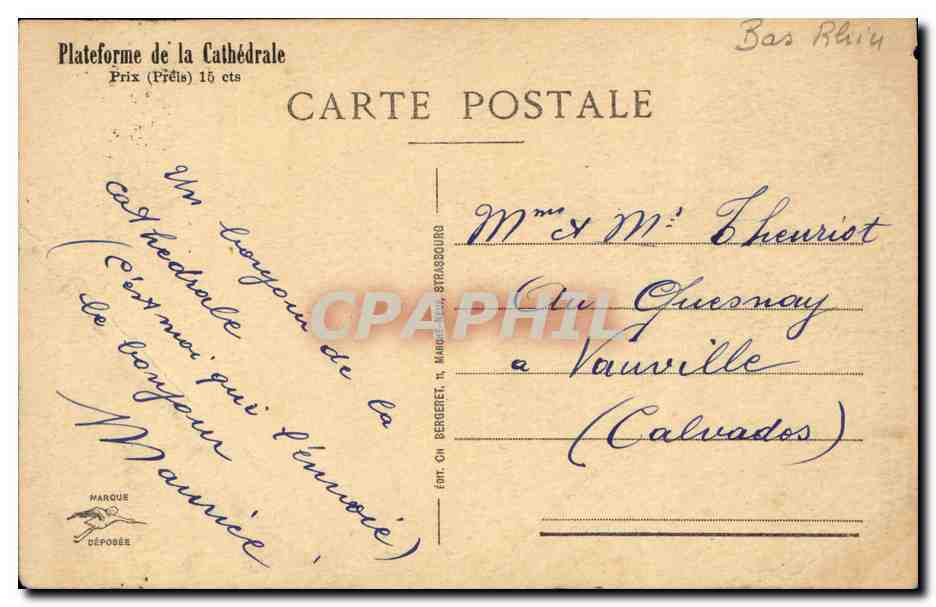 Bas Rhin
Plateforme de la Cathédrale
Prix (Preis) 15 cts
CARTE POSTALE
Un bonjour de la
cathédrale
(c'est moi qui l'envoie)
le bonjour
Maurice
ÉDIT. CH BERGERET, 11, MARCHÉ-NEUF, STRASBOURG
Mme & Mr Theuriot
Au Quesnay
a Vauville
(Calvados)
CPAPHIL
MARQUE
DÉPOSÉE